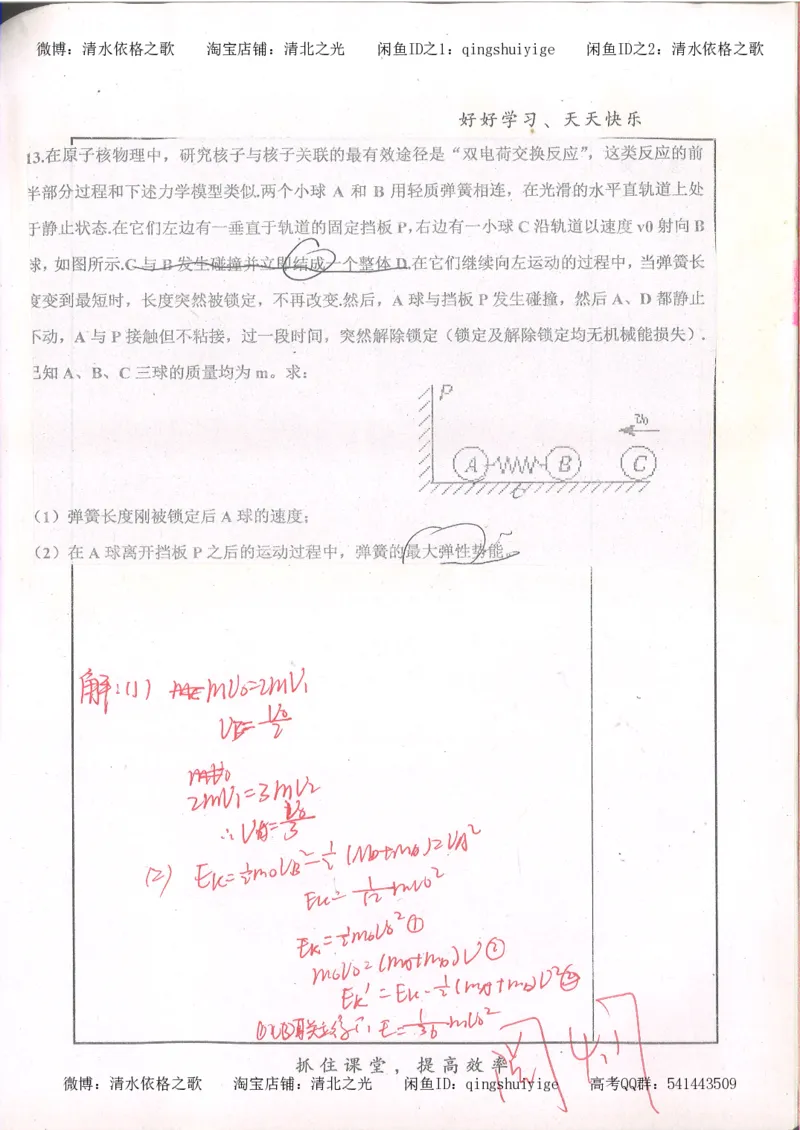 微博：清水依格之歌 淘宝店铺：清北之光 闲鱼ID之1：qingshuiyige 闲鱼ID之2：清水依格之歌
好好学习、天天快乐
13.在原子核物理中，研究核子与核子关联的最有效途径是“双电荷交换反应”，这类反应的前
半部分过程和下述力学模型类似.两个小球 A 和 B 用轻质弹簧相连，在光滑的水平直轨道上处
于静止状态.在它们左边有一垂直于轨道的固定挡板 P,右边有一小球 C 沿轨道以速度 v0 射向 B
球，如图所示.C 与 B 发生碰撞并立即结成一个整体 D.在它们继续向左运动的过程中，当弹簧长
度变到最短时，长度突然被锁定，不再改变.然后，A 球与挡板 P 发生碰撞，然后 A、D 都静止
不动，A 与 P 接触但不粘接，过一段时间，突然解除锁定（锁定及解除锁定均无机械能损失）.
已知 A、B、C 三球的质量均为 m。求：
P
v0
A B C
（1）弹簧长度刚被锁定后 A 球的速度；
（2）在 A 球离开挡板 P 之后的运动过程中，弹簧的最大弹性势能。
解:(1) mV0=2mV1
2mV1=3mV2
(2) Ek=½mDVB²=½(MD+mA)2VA²
Ek=1/12 mV0²
Ek=½mDV0²①
mDV0=(mA+mD)V'②
Ek'=Ek-½(mA+mD)V'²③
E=1/36 mV0²
抓住课堂，提高效率
微博：清水依格之歌 淘宝店铺：清北之光 闲鱼ID：qingshuiyige 高考QQ群：541443509